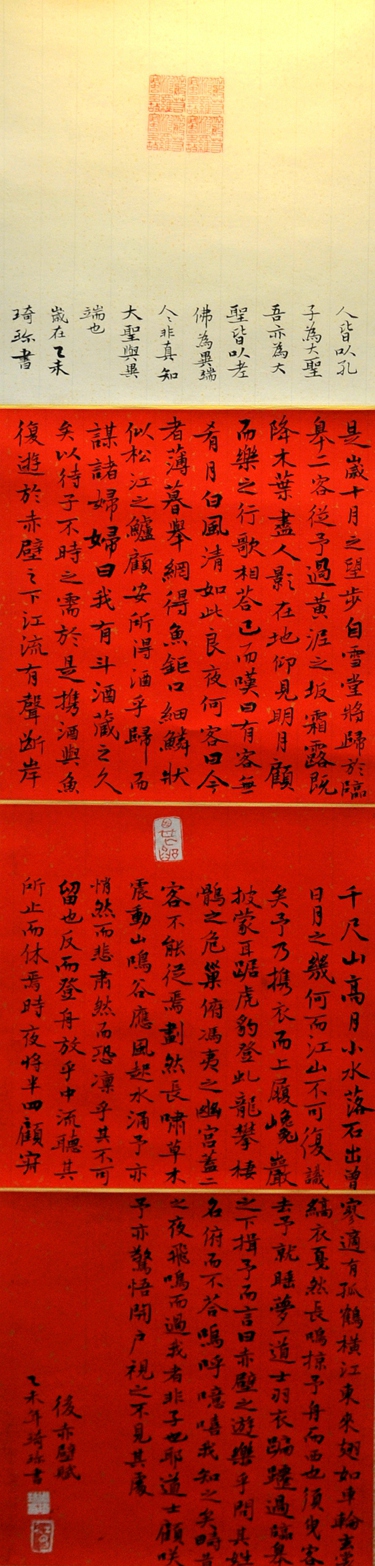 人皆以孔
子為大聖
吾亦為大
聖皆以老
佛為異端
人〻非真知
大聖與異
端也
歲在乙未
琦珎書
是歲十月之望步自雪堂將歸於臨
皋二客從予過黃泥之坂霜露既
降木葉盡人影在地仰見明月顧
而樂之行歌相答已而嘆曰有客無
肴月白風清如此良夜何客曰今
者薄暮舉網得魚鉅口細鱗狀
似松江之鱸顧安所得酒乎歸而
謀諸婦婦曰我有斗酒藏之久
矣以待子不時之需於是攜酒與魚
復遊於赤壁之下江流有聲斷岸
千尺山高月小水落石出曾
日月之幾何而江山不可復識
矣予乃攜衣而上履巉巖
披蒙茸踞虎豹登虬龍攀棲
鶻之危巢俯馮夷之幽宮蓋二
客不能從焉劃然長嘯草木
震動山鳴谷應風起水涌予亦
悄然而悲肅然而恐凜乎其不可
留也反而登舟放乎中流聽其
所止而休焉時夜將半四顧寂
寥適有孤鶴橫江東來翅如車輪玄
縞衣戛然長鳴掠予舟而西也須臾客
去予就睡夢一道士羽衣蹁躚過臨皋
之下揖予而言曰赤壁之遊樂乎問其姓
名俯而不答嗚呼噫嘻我知之矣疇昔
之夜飛鳴而過我者非子也耶道士顧笑
予亦驚悟開戶視之不見其處
後赤壁賦
乙未年琦珎書